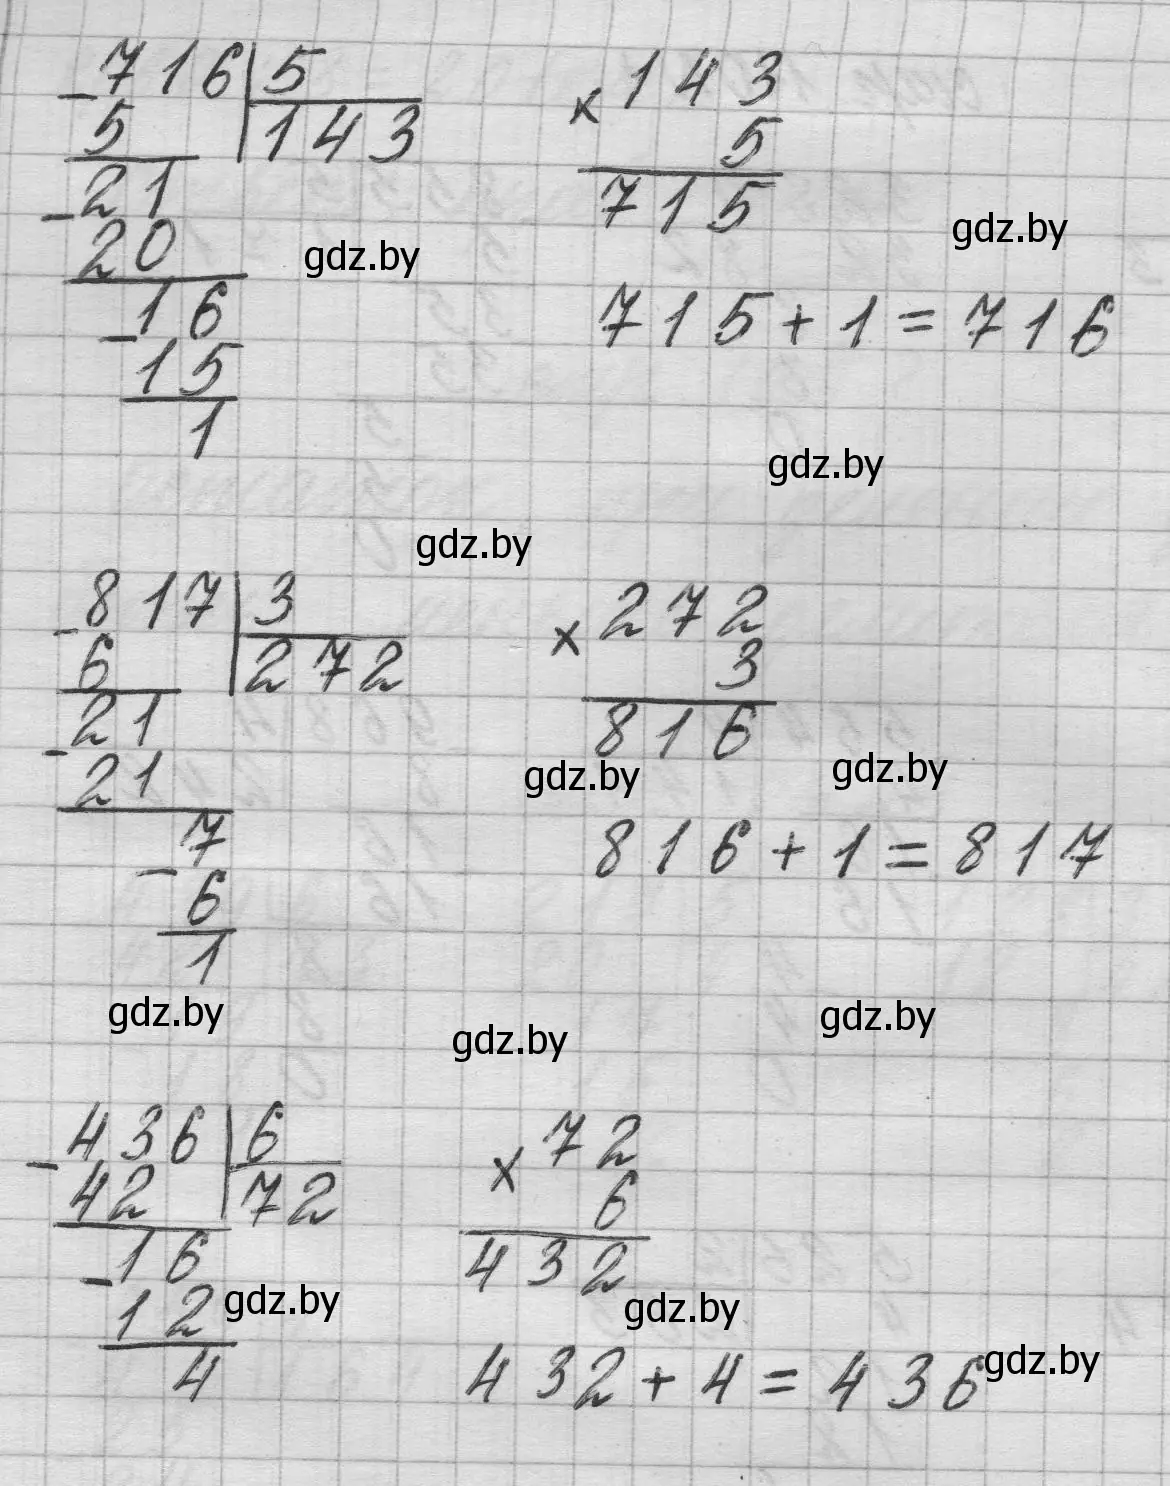 716 | 5
- 5 | 143
21
- 20
16
- 15
1
× 143
5
715
715 + 1 = 716
gdz.by
gdz.by
gdz.by
gdz.by
817 | 3
- 6 | 272
21
- 21
7
- 6
1
× 272
3
816
816 + 1 = 817
gdz.by
gdz.by
gdz.by
gdz.by
gdz.by
436 | 6
- 42 | 72
16
- 12
4
× 72
6
432
432 + 4 = 436
gdz.by
gdz.by
gdz.by